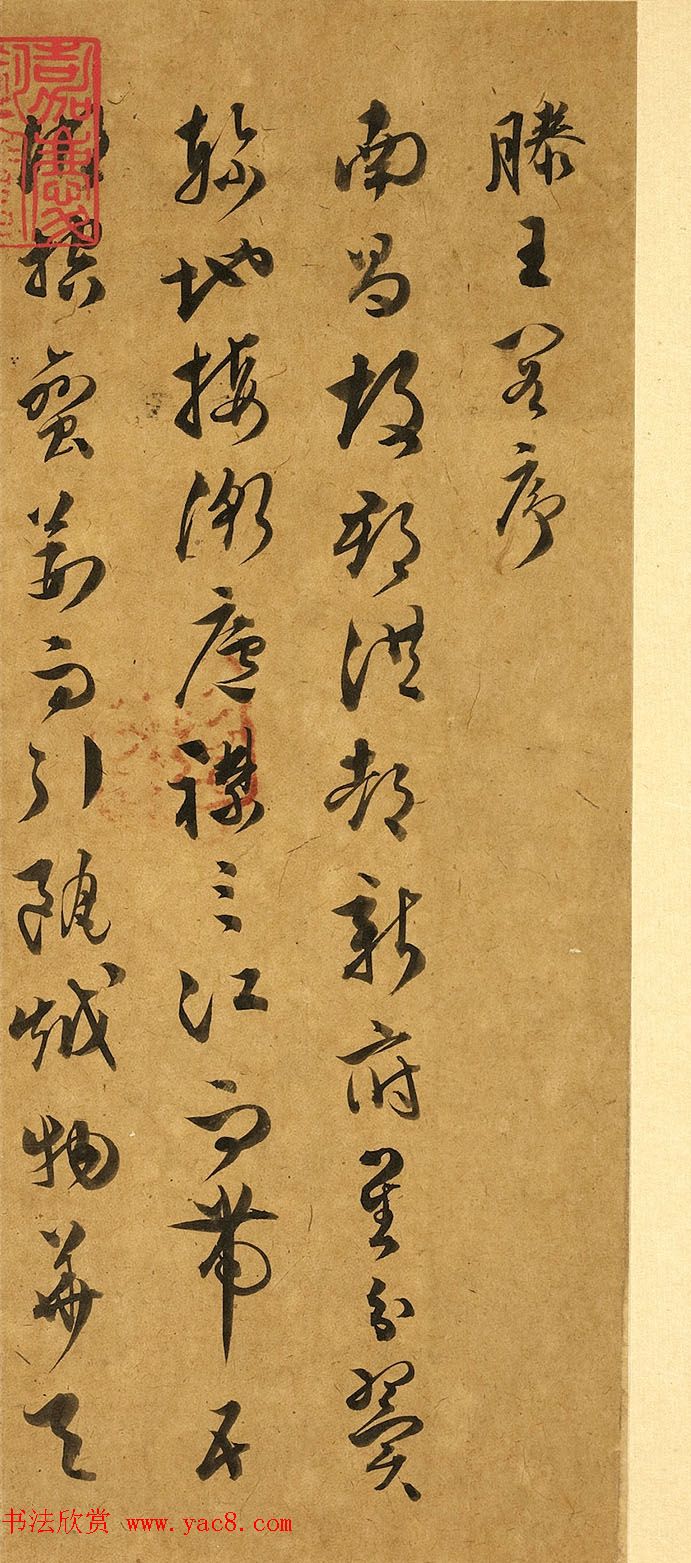 滕王閣序
南昌故郡洪都新府星分翼
軫地接衡廬襟三江而帶五
湖控蠻荊而引甌越物華天
书法欣赏 www.yac8.com